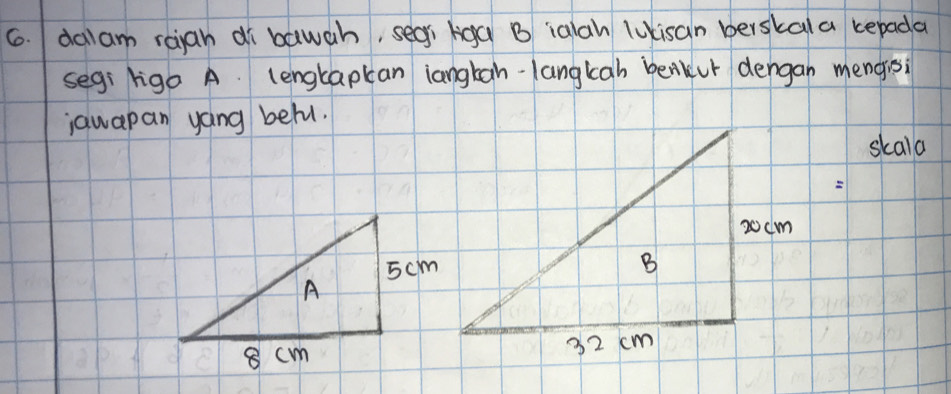 6. dalam rajah di bawah, segi tiga B ialah lukisan berskala kepada
segi tiga A. lengkapkan langkah-langkah berikut dengan mengisi
jawapan yang betul.
skala
=
20 cm
5 cm
B
A
8 cm
32 cm